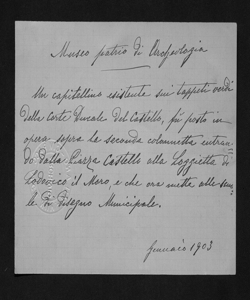 Museo patrio di Archeologia
Un capitellino esistente sui tappeti verdi
della Corte Ducale del Castello, fu posto in
opera sopra la seconda colonnetta entran
do dalla Piazza Castello alla Loggietta di
Lodovico il Moro, e che ora mette alle scuo
le di Disegno Municipale.
Gennaio 1903